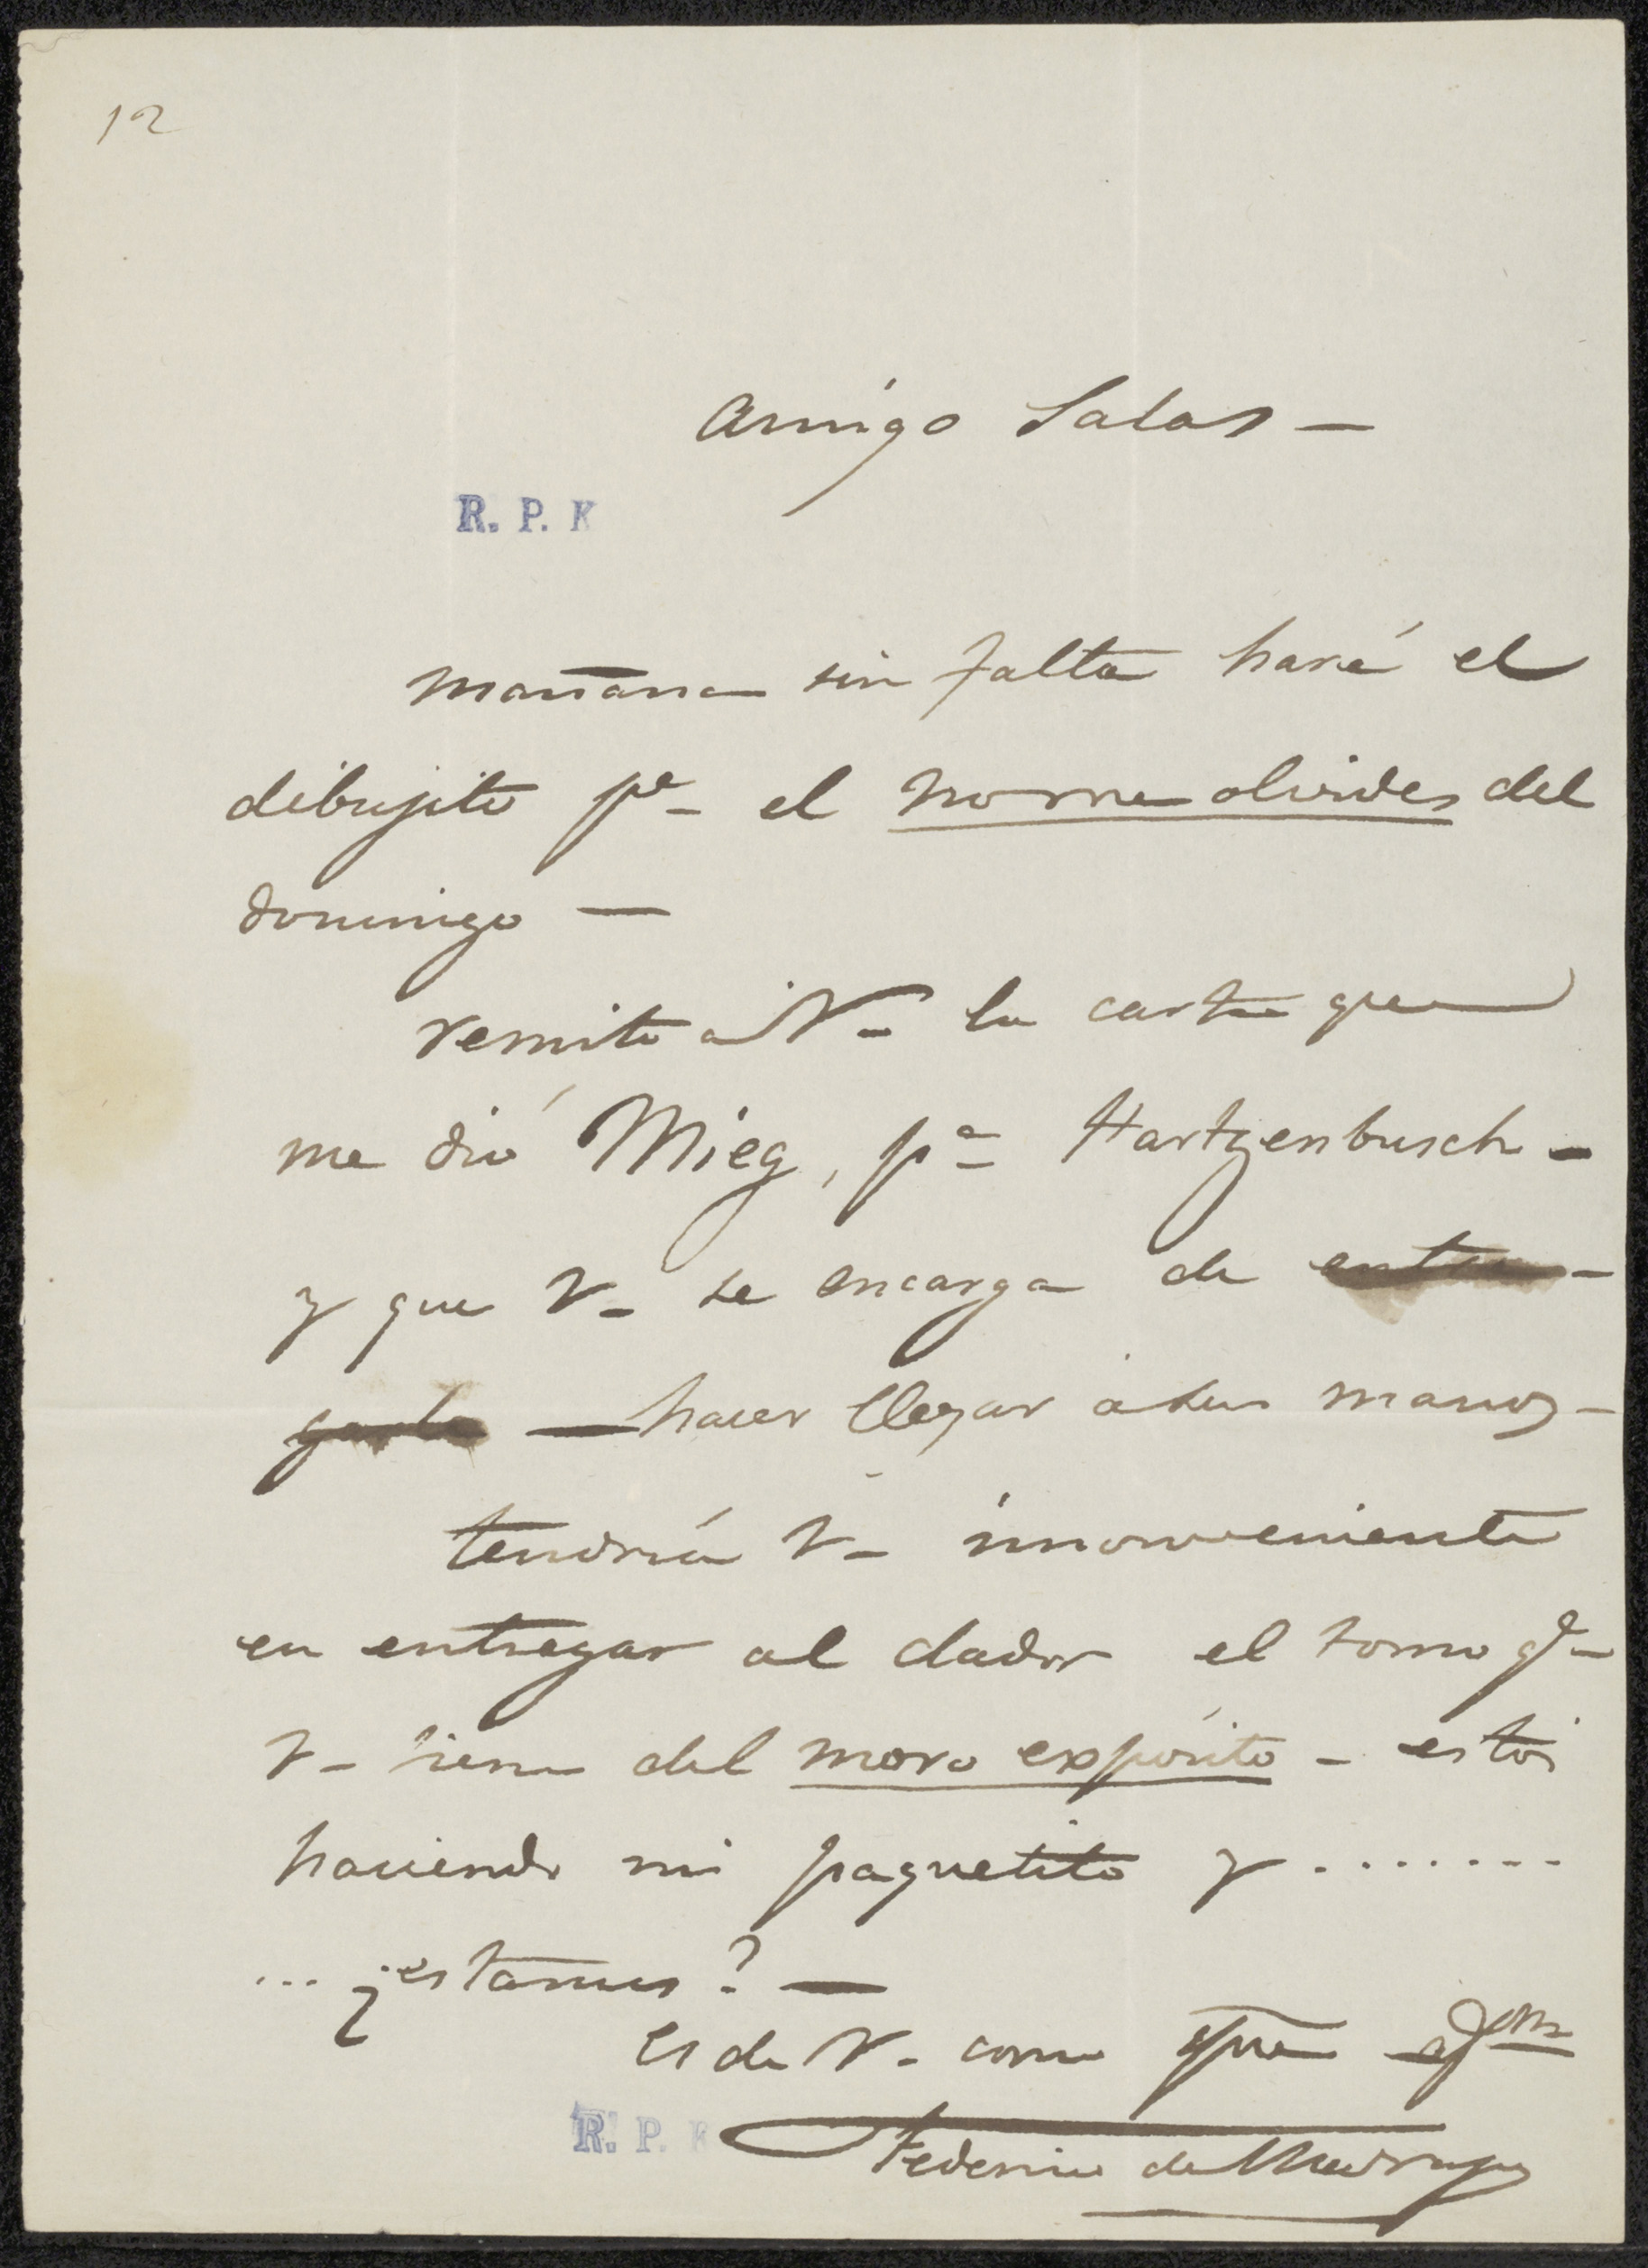 12
Amigo Salas —
R. P. K
mañana sin falta haré el
dibujito pª - el nomeolvides del
domingo —
remito á V - la carta que
me dió Mieg, pª - Hartzenbusch -
y que V - se encarga de entre-
garla — hacer llegar á sus manos -
tendría V - inconveniente
en entregar al dador el tomo q -
V - tiene del moro expósito - estoi
haciendo mi paquetito y ........
... ¿estamos? —
es de V - como spre afmo
R. P. K
Federico de Madrazo